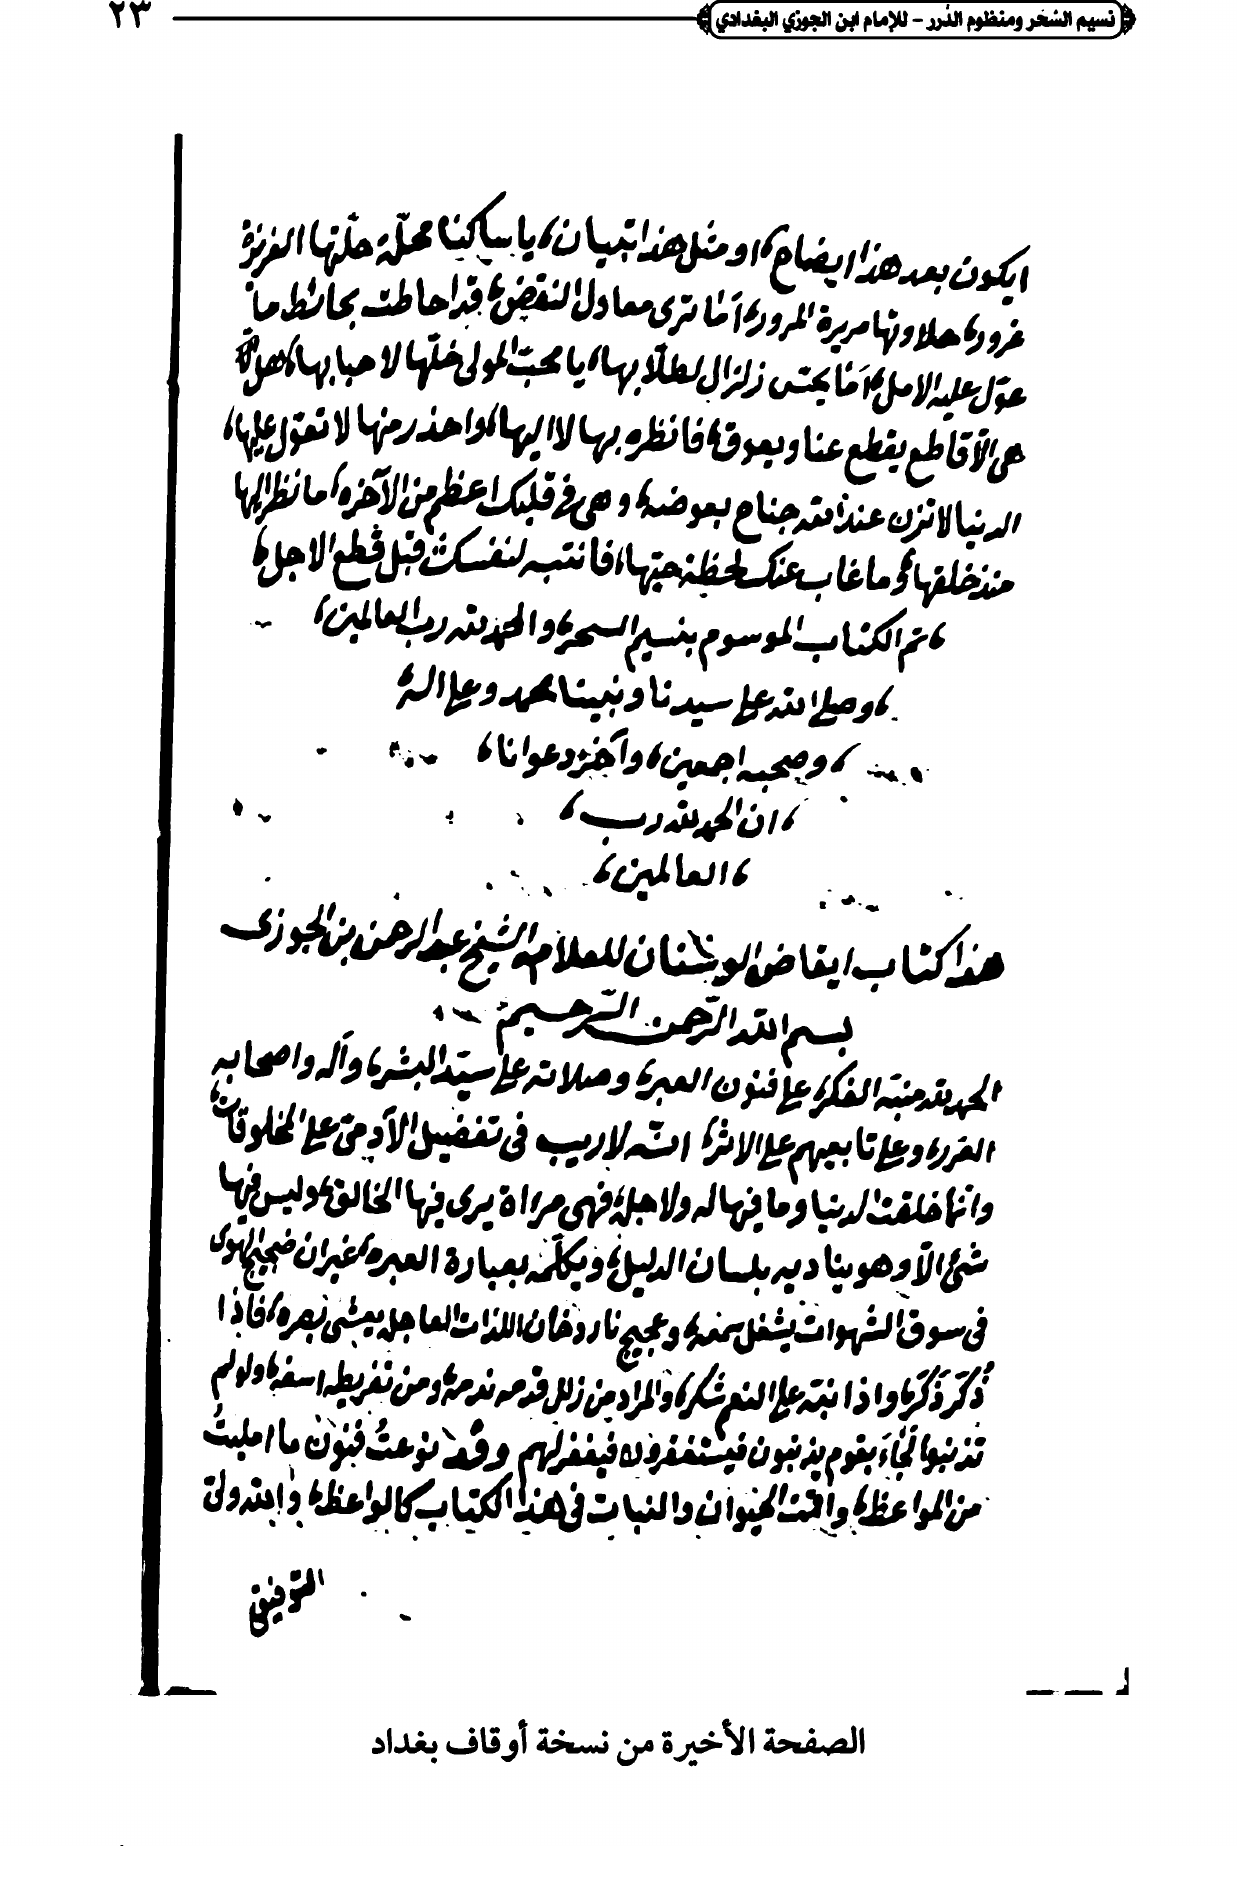 نسيم السَّحَر ومنظوم الدُّرر - للإمام ابن الجوزي البغدادي ٢٣
ايكون بعد هذا ايضاح، او مثل هذا تبيان، يا ساكنا محلّة حلّتها الغريزة
غروره، حلاوتها مريرة المروره، اَمَا ترى معادل النقض، قد احاطت بحائط ما
عوّل عليه الامل، اَمَا يخشى زلزال لطلّابها، يا محبّ المولى خلّها لاحبابها، هل
هى الّا قاطع يقطع عنا ويعوق، فانظره بها لا اليها، واحذر منها لا تعوّل عليها،
الدنيا لا تزن عند الله جناح بعوضه، وهى فى قلبك اعظم من الآخره، ما نظر اليها
منذ خلقها، وما غاب عنك لحظة حبّها، فانتبه لنفسك قبل قطع الاجل،
، تم الكتاب الموسوم بنسيم السحر، والحمد لله رب العالمين،
، وصلى الله على سيدنا ونبينا محمد وعلى اله
، وصحبه اجمعين، وآخر دعوانا،
، ان الحمد لله رب،
، العالمين،
هذا كتاب ايقاض الوسنان للعلامه الشيخ عبد الرحمن بن الجوزى
بسم الله الرّحمن الرّحيم
الحمد لله منبّه الفكر، على فنون العبر، وصلاته على سيّد البشر، وآله واصحابه
الغرر، وعلى تابعيهم على الاثر، انّه لا ريب فى تفضيل الآدمىّ على المخلوقات،
وانّما خلقت الدنيا وما فيها له ولاجله، فهى مرااة يرى فيها الخالق، وليس فيها
شئ الّا وهو يناديه بلسان الدليل، ويكلّمه بعبارة العبره، غير ان ضجيج الهوى
فى سوق الشهوات يشغل سمعه، وعجيج نار دخان اللذات العاجله يعشى بصره، فاِذا
ذُكّر ذَكَر، واذا نبّه على النعم شكر، والمراد من زلل قدمه ندمه، ومن تفريطه اسفه، ولو لم
تذنبوا لجاءَ بقوم يذنبون فيستغفرون فيغفر لهم وقد نوعتُ فنون ما امليتُ
من المواعظ، واقمت الحيوان والنبات فى هذا الكتاب كالواعظ، والله ولىّ
التوفيق
الصفحة الأخيرة من نسخة أوقاف بغداد